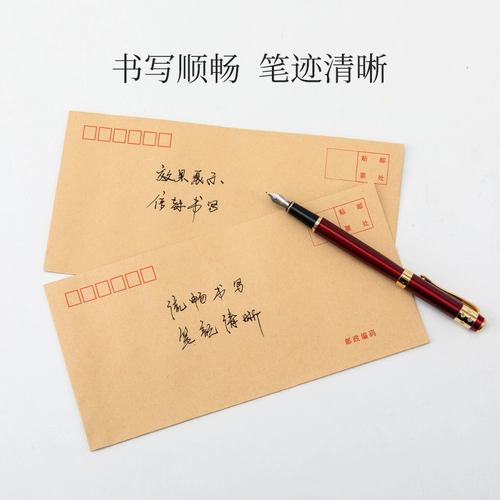 书写顺畅 笔迹清晰
贴 邮
票 处
效果展示
信封书写
贴 邮
票 处
流畅书写
清晰
邮政编码